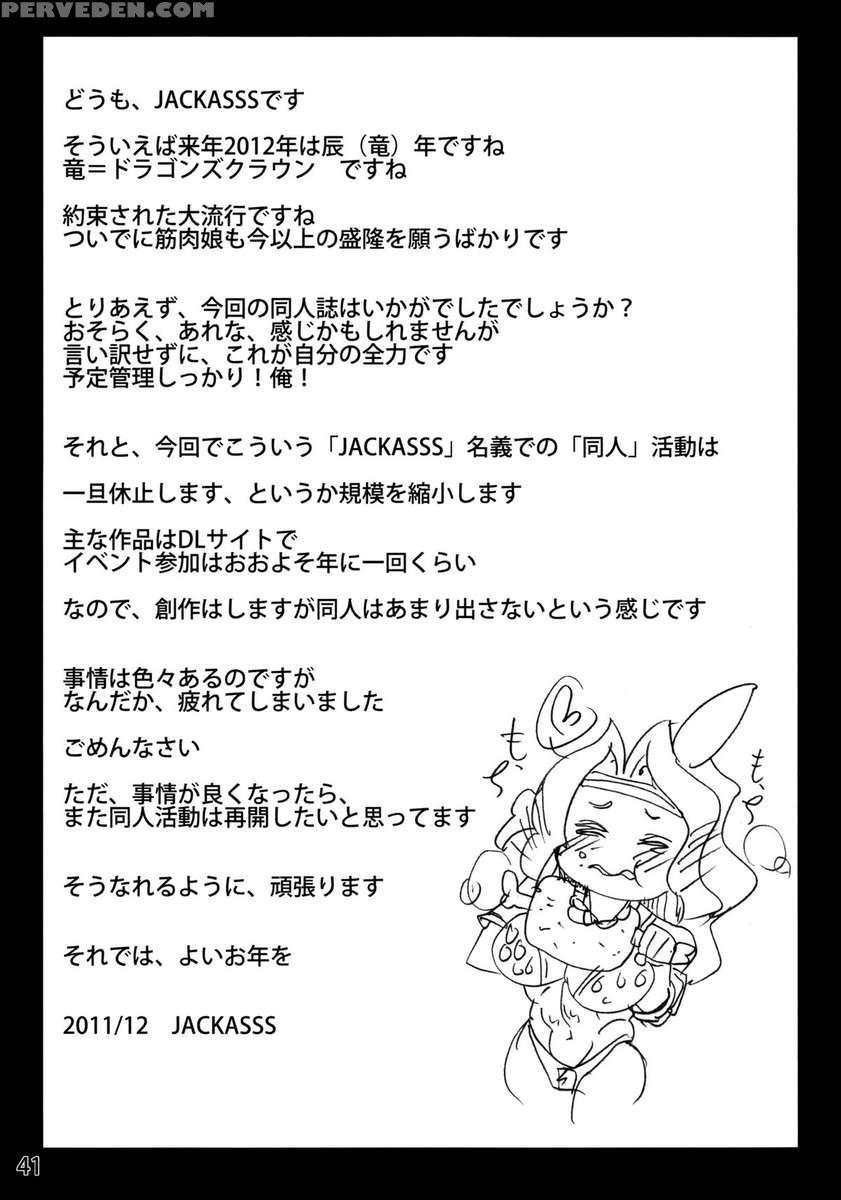 PERVEDEN.COM
どうも、JACKASSSです
そういえば来年2012年は辰（竜）年ですね
竜＝ドラゴンズクラウン　ですね
約束された大流行ですね
ついでに筋肉娘も今以上の盛隆を願うばかりです
とりあえず、今回の同人誌はいかがでしたでしょうか？
おそらく、あれな、感じかもしれませんが
言い訳せずに、これが自分の全力です
予定管理しっかり！俺！
それと、今回でこういう「JACKASSS」名義での「同人」活動は
一旦休止します、というか規模を縮小します
主な作品はDLサイトで
イベント参加はおおよそ年に一回くらい
なので、創作はしますが同人はあまり出さないという感じです
事情は色々あるのですが
なんだか、疲れてしまいました
ごめんなさい
ただ、事情が良くなったら、
また同人活動は再開したいと思ってます
そうなれるように、頑張ります
それでは、よいお年を
2011/12　JACKASSS
41